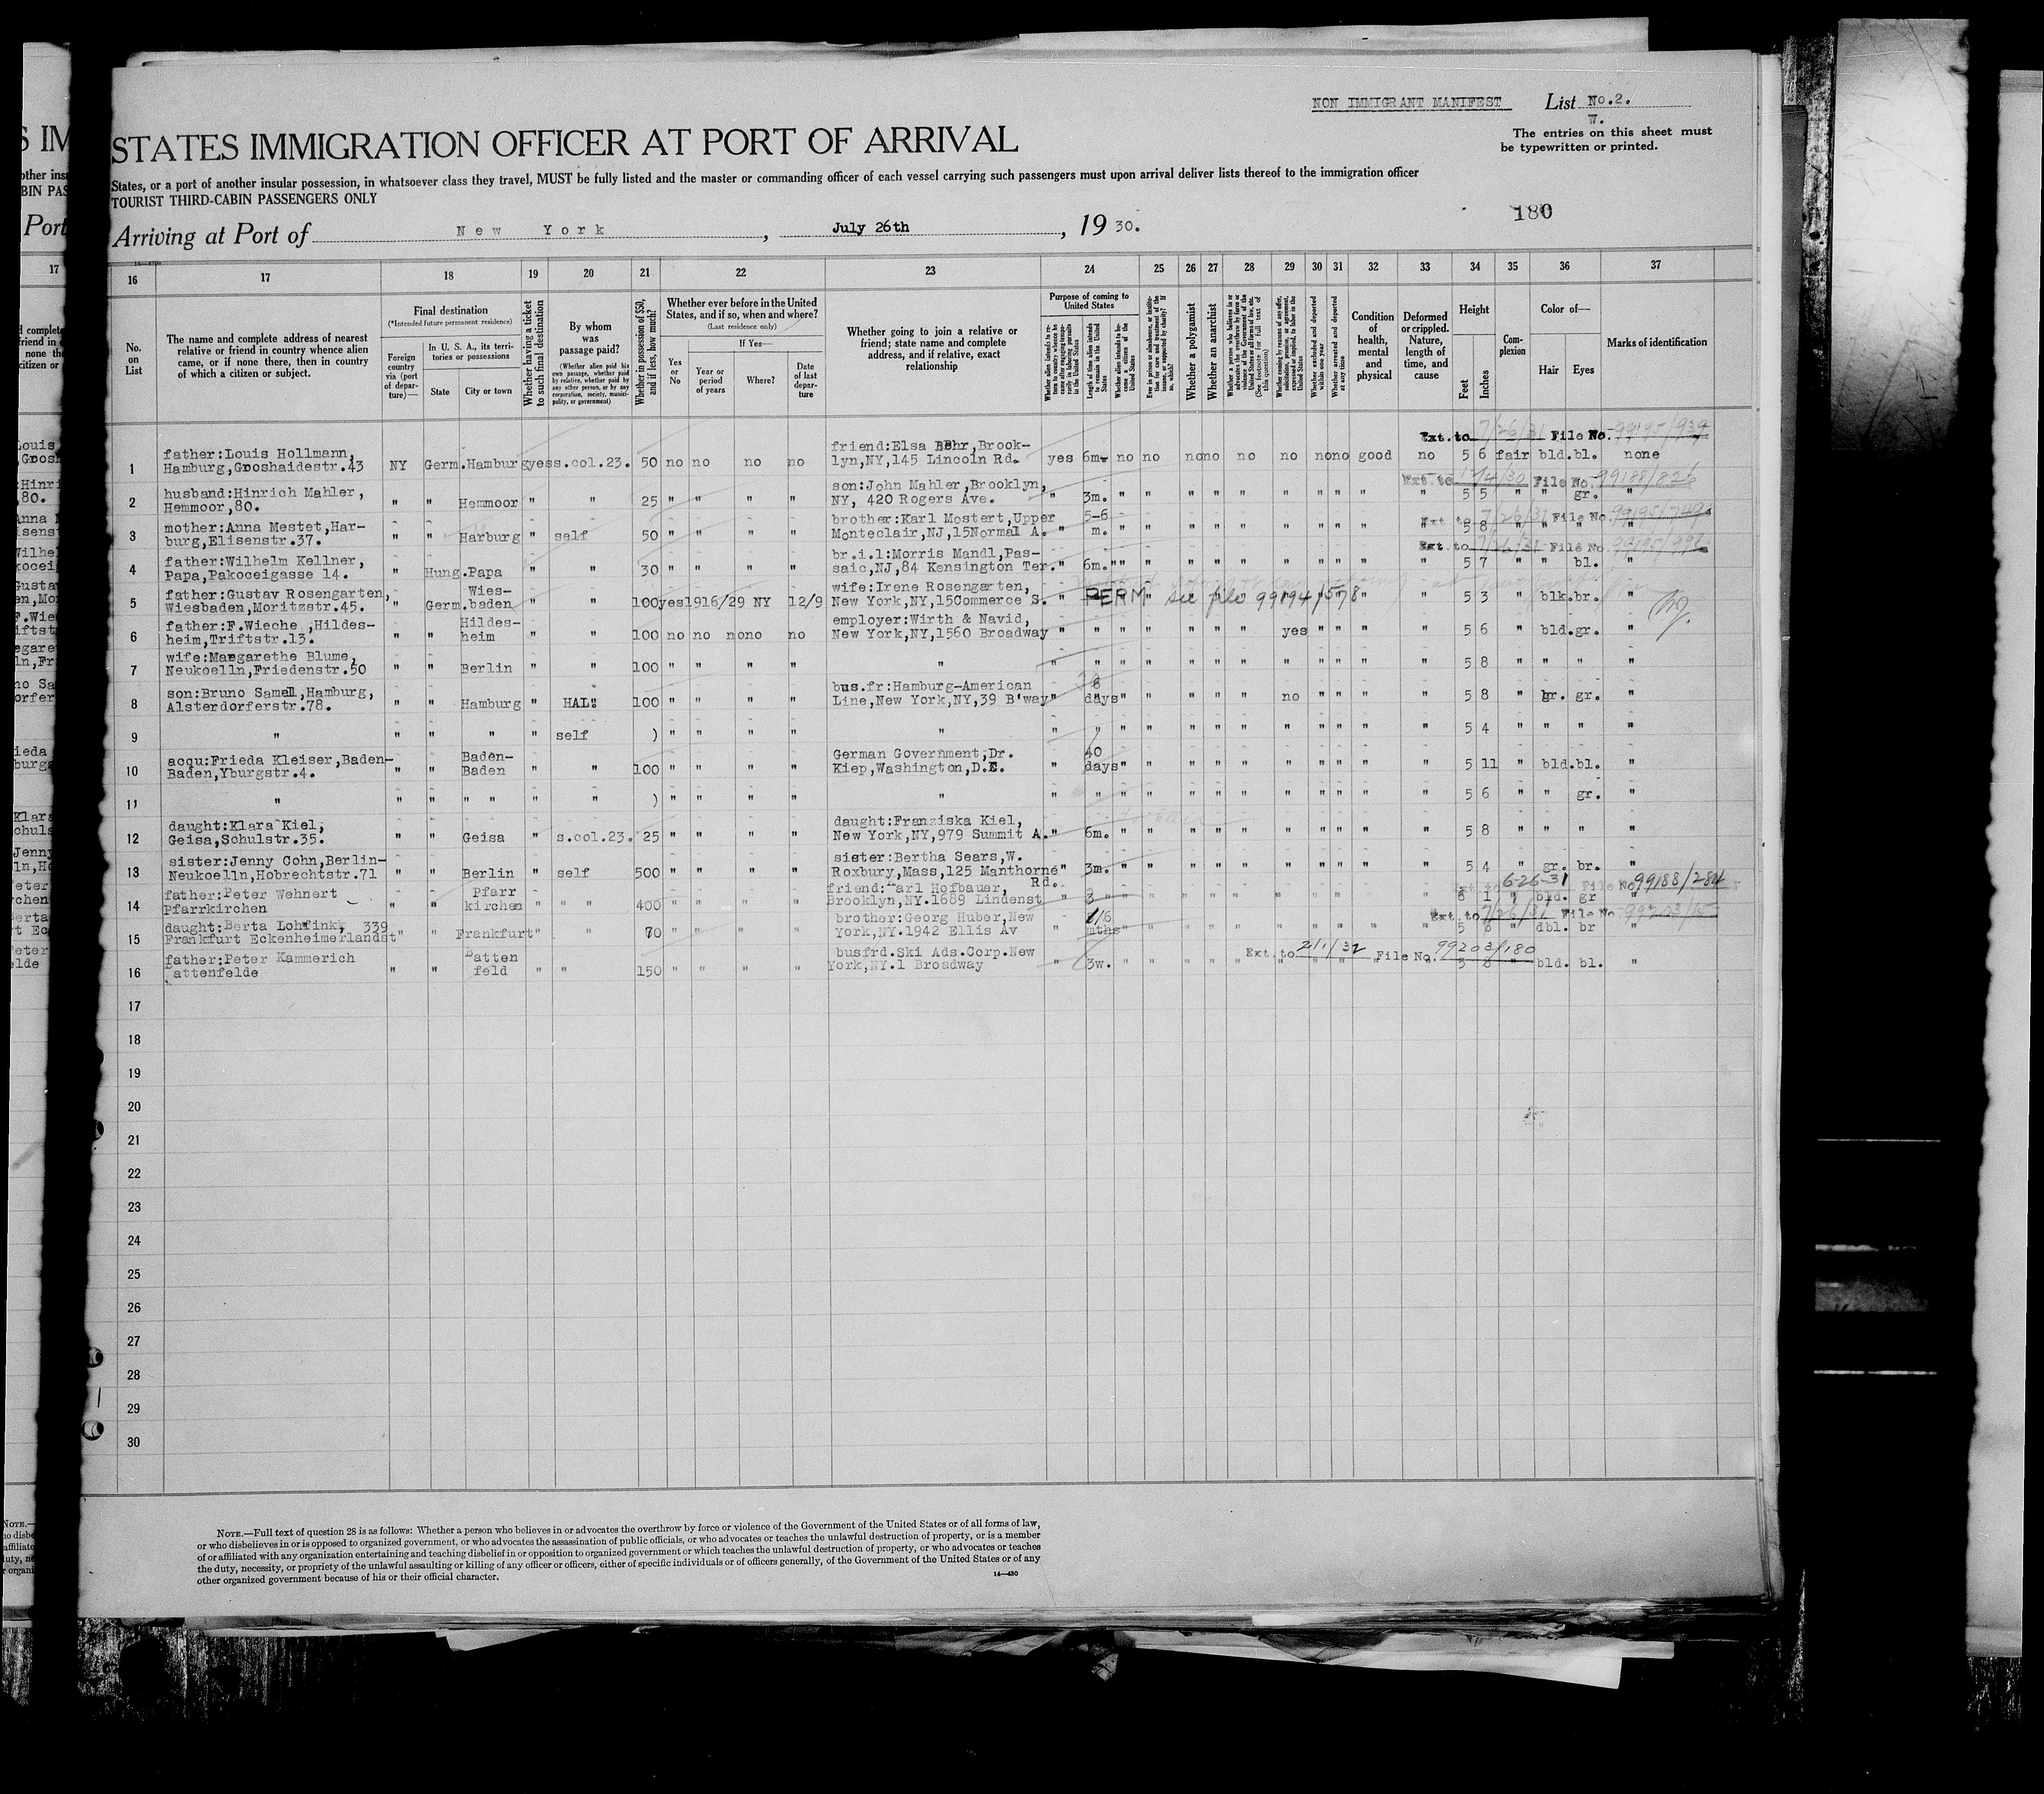 NON IMMIGRANT MANIFEST List No.2.
W.
The entries on this sheet must
be typewritten or printed.
STATES IMMIGRATION OFFICER AT PORT OF ARRIVAL
States, or a port of another insular possession, in whatsoever class they travel, MUST be fully listed and the master or commanding officer of each vessel carrying such passengers must upon arrival deliver lists thereof to the immigration officer
TOURIST THIRD-CABIN PASSENGERS ONLY
180
Arriving at Port of New York, July 26th, 19 30.
16 17 18 19 20 21 22 23 24 25 26 27 28 29 30 31 32 33 34 35 36 37
No. on List
The name and complete address of nearest relative or friend in country whence alien came, or if none there, then in country of which a citizen or subject.
Final destination
(*Intended future permanent residence)
Foreign country via (port of departure)—
In U. S. A., its territories or possessions
State
City or town
Whether having a ticket to such final destination
By whom was passage paid?
(Whether alien paid his own passage, whether paid by relative, whether paid by any other person, or by any corporation, society, municipality, or government)
Whether in possession of $50, and if less, how much?
Whether ever before in the United States, and if so, when and where?
(Last residence only)
Yes or No
If Yes—
Year or period of years
Where?
Date of last departure
Whether going to join a relative or friend; state name and complete address, and if relative, exact relationship
Purpose of coming to United States
Length of time alien intends to remain in the United States
Whether a polygamist
Whether an anarchist
Condition of health, mental and physical
Deformed or crippled. Nature, length of time, and cause
Height
Feet
Inches
Complexion
Color of—
Hair
Eyes
Marks of identification
Ext. to 7/26/31 File No. 99195/939
1 father:Louis Hollmann, Hamburg,Groshaidestr.43 NY Germ. Hamburg yes s.col.23. 50 no no no no friend:Elsa Behr,Brooklyn,NY,145 Lincoln Rd. yes 6m. no no no no no no no no good no 5 6 fair bld. bl. none
Ext. to 12/4/30 File No. 99188/826
2 husband:Hinrich Mahler, Hemmoor,80. " " Hemmoor " " 25 " " " " son:John Mahler,Brooklyn, NY, 420 Rogers Ave. " 3m. " " " " " " " " " " 5 5 " " gr. "
Ext. to 7/26/31 File No. 99195/749
3 mother:Anna Mestet,Harburg,Elisenstr.37. " " Harburg " self 50 " " " " brother:Karl Mostert,Upper Monteclair,NJ,15Normal A. " 5-6 m. " " " " " " " " " " 5 8 " " " "
Ext. to 7/26/31 File No. 99195/992
4 father:Wilhelm Kellner, Papa,Pakoceigasse 14. " Hung. Papa " " 30 " " " " br.i.l:Morris Mandl,Passaic,NJ,84 Kensington Ter. " 6m. " " " " " " " " " " 5 7 " " bl. "
5 father:Gustav Rosengarten, Wiesbaden,Moritzstr.45. " Germ. Wiesbaden " " 100 yes 1916/29 NY 12/9 wife:Irene Rosengarten, New York,NY,15Commerce S. " PERM See file 99194/578 " 5 3 " blk. br. "
6 father:F.Wieche ,Hildesheim,Triftstr.13. " " Hildesheim " " 100 no no no no no employer:Wirth & Navid, New York,NY,1560 Broadway " " " " " " " yes " " " " 5 6 " bld. gr. "
7 wife:Margarethe Blume, Neukoelln,Friedenstr.50 " " Berlin " " 100 " " " " " " " " " " " " " " " " " 5 8 " " " "
8 son:Bruno Samell,Hamburg, Alsterdorferstr.78. " " Hamburg " HAL" 100 " " " " bus.fr:Hamburg-American Line,New York,NY,39 B'way " 8 days " " " " " no " " " " 5 8 " br. gr. "
9 " " " " " self ) " " " " " " " " " " " " " " " " " 5 4 " " " "
10 acqu:Frieda Kleiser,Baden-Baden,Yburgstr.4. " " Baden-Baden " " 100 " " " " German Government,Dr. Kiep,Washington,D.C. " 40 days " " " " " " " " " " 5 11 " bld. bl. "
11 " " " " " " " ) " " " " " " " " " " " " " " " " " 5 6 " " gr. "
12 daught:Klara Kiel, Geisa,Schulstr.35. " " Geisa " s.col.23. 25 " " " " daught:Franziska Kiel, New York,NY,979 Summit A. " 6m. " " " " " " " " " " 5 8 " " " "
13 sister:Jenny Cohn,Berlin-Neukoelln,Hobrechtstr.71 " " Berlin " self 500 " " " " sister:Bertha Sears,W. Roxbury,Mass,125 Manthorne Rd. " 3m. " " " " " " " " " " 5 4 " gr. br. "
Ext. to 6-26-31 File No. 99188/284
14 father:Peter Wehnert Pfarrkirchen " " Pfarrkirchen " " " 400 " " " " friend:Karl Hofbauer, Brooklyn,NY.1689 Lindenst " 3 " " " " " " " " " " " 6 1 " bld. gr "
Ext. to 7/26/31 File No. 99203/15
15 daught:Berta Lohfink, 339 Frankfurt Eckenheimerlandst " " Frankfurt " " 70 " " " " brother:Georg Huber,New York,NY.1942 Ellis Av " 1/6 mths " " " " " " " " " " 5 6 " dbl. br "
Ext. to 2/1/32 File No. 99203/180
16 father:Peter Kammerich Battenfelde " " Battenfeld " " 150 " " " " busfrd.Ski Ads.Corp.New York,NY.1 Broadway " 3w. " " " " " " " " " " 5 8 " bld. bl. "
17
18
19
20
21
22
23
24
25
26
27
28
29
30
NOTE.—Full text of question 28 is as follows: Whether a person who believes in or advocates the overthrow by force or violence of the Government of the United States or of all forms of law,
or who disbelieves in or is opposed to organized government, or who advocates the assassination of public officials, or who advocates or teaches the unlawful destruction of property, or is a member
of or affiliated with any organization entertaining and teaching disbelief in or opposition to organized government or which teaches the unlawful destruction of property, or who advocates or teaches
the duty, necessity, or propriety of the unlawful assaulting or killing of any officer or officers, either of specific individuals or of officers generally, of the Government of the United States or of any
other organized government because of his or their official character.
14—430